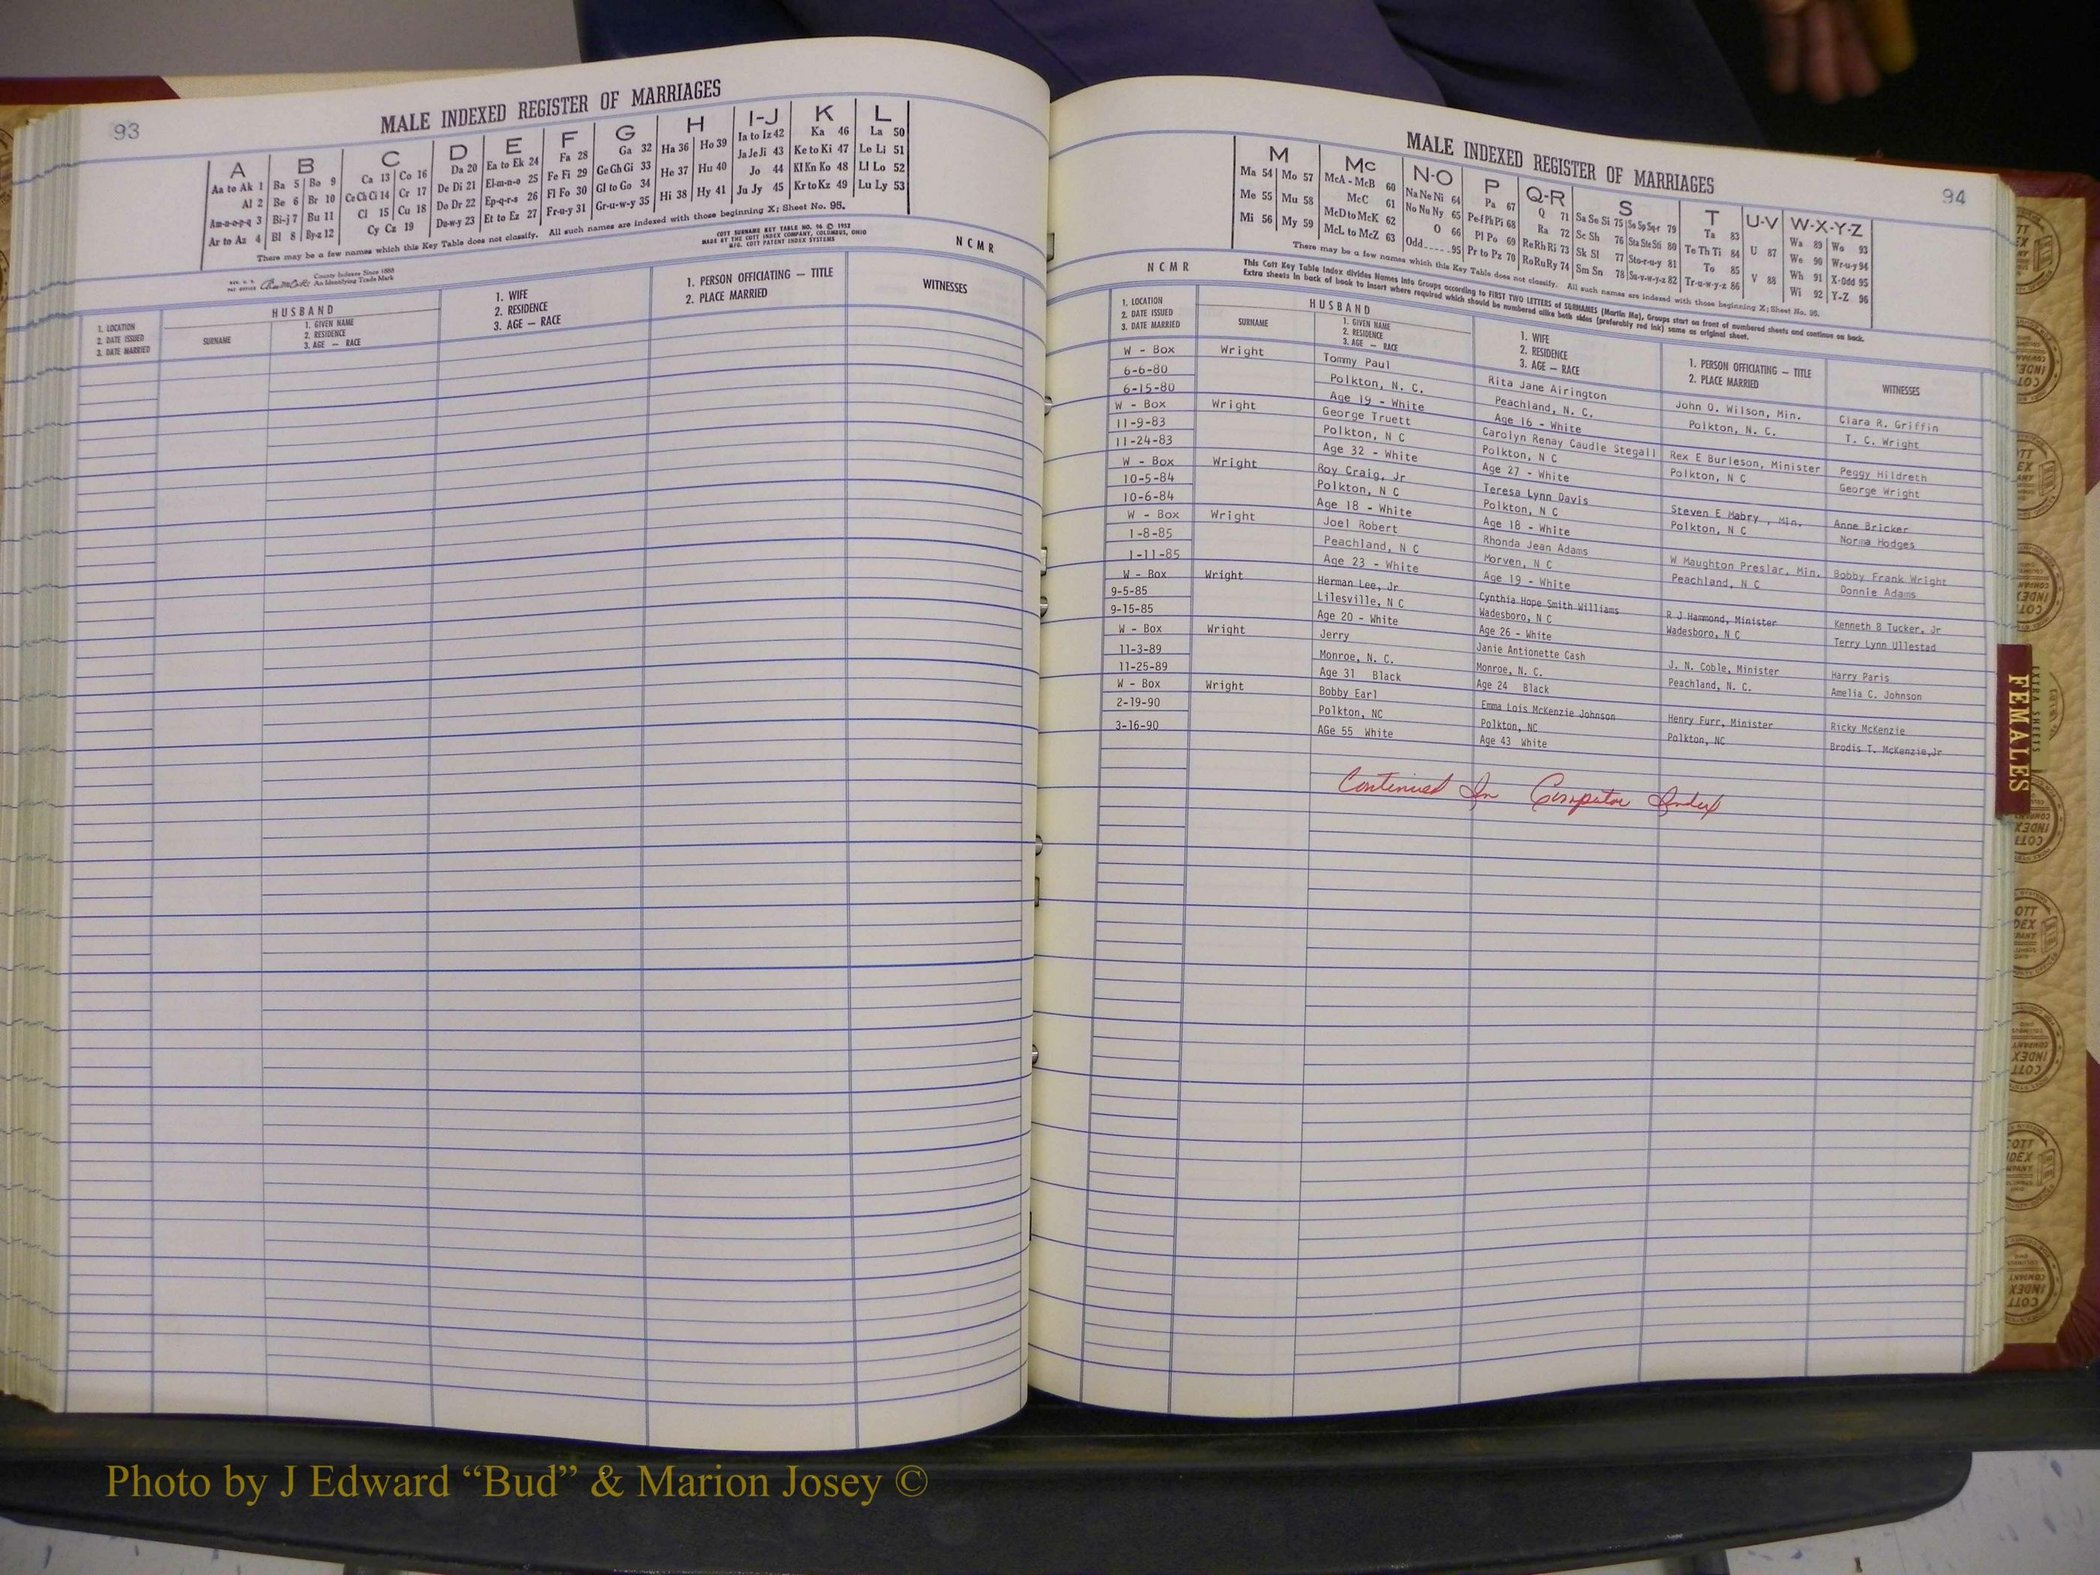 93
MALE INDEXED REGISTER OF MARRIAGES
A B C D E F G H I-J K L
Aa to Ak 1 Ba 5 Bo 9 Ca 13 Co 16 Da 20 Ea to Ek 24 Fa 28 Ga 32 Ha 36 Ho 39 Ia to Iz 42 Ka 46 La 50
Al 2 Be 6 Br 10 Ce Ch Ci 14 Cr 17 De Di 21 El-m-n-o 25 Fe Fi 29 Ge Gh Gi 33 He 37 Hu 40 Ja Je Ji 43 Ke to Ki 47 Le Li 51
Am-n-o-p-q 3 Bi-j 7 Bu 11 Cl 15 Cu 18 Do Dr 22 Ep-q-r-s 26 Fl Fo 30 Gl to Go 34 Hi 38 Hy 41 Jo 44 Kl Kn Ko 48 Ll Lo 52
Ar to Az 4 Bl 8 By-z 12 Cy Cz 19 Du-w-y 23 Et to Ez 27 Fr-u-y 31 Gr-u-w-y 35 Ju Jy 45 Kr to Kz 49 Lu Ly 53
There may be a few names which this Key Table does not classify. All such names are indexed with those beginning X; Sheet No. 95.
County Indexes Since 1888
An Identifying Trade Mark
COTT SURNAME KEY TABLE NO. 96 © 1952
MADE BY THE COTT INDEX COMPANY, COLUMBUS, OHIO
MFG. COTT PATENT INDEX SYSTEMS
N C M R
1. LOCATION
2. DATE ISSUED
3. DATE MARRIED
HUSBAND
SURNAME
1. GIVEN NAME
2. RESIDENCE
3. AGE — RACE
1. WIFE
2. RESIDENCE
3. AGE — RACE
1. PERSON OFFICIATING — TITLE
2. PLACE MARRIED
WITNESSES
94
MALE INDEXED REGISTER OF MARRIAGES
M Mc N-O P Q-R S T U-V W-X-Y-Z
Ma 54 Mo 57 McA - McB 60 Na Ne Ni 64 Pa 67 Q 71 Sa Se Si 75 So Sp Sq-r 79 Ta 83 U 87 Wa 89 Wo 93
Me 55 Mu 58 McC 61 No Nu Ny 65 Pe-f Ph Pi 68 Ra 72 Sc Sh 76 Sta Ste Sti 80 Te Th Ti 84 V 88 We 90 Wr-u-y 94
Mi 56 My 59 McD to McK 62 O 66 Pl Po 69 Re Rh Ri 73 Sk Sl 77 Sto-r-u-y 81 To 85 Wh 91 X-Odd 95
McL to McZ 63 Odd.....95 Pr to Pz 70 Ro Ru Ry 74 Sm Sn 78 Su-v-w-y-z 82 Tr-u-w-y-z 86 Wi 92 Y-Z 96
There may be a few names which this Key Table does not classify. All such names are indexed with those beginning X; Sheet No. 95.
N C M R
This Cott Key Table Index divides Names into Groups according to FIRST TWO LETTERS of SURNAMES (Martin Ma), Groups start on front of numbered sheets and continue on back.
Extra sheets in back of book to insert where required which should be numbered alike both sides (preferably red ink) same as original sheet.
1. LOCATION
2. DATE ISSUED
3. DATE MARRIED
HUSBAND
SURNAME
1. GIVEN NAME
2. RESIDENCE
3. AGE — RACE
1. WIFE
2. RESIDENCE
3. AGE — RACE
1. PERSON OFFICIATING — TITLE
2. PLACE MARRIED
WITNESSES
W - Box Wright Tommy Paul Rita Jane Airington John O. Wilson, Min. Clara R. Griffin
6-6-80 Polkton, N. C. Peachland, N. C. Polkton, N. C. T. C. Wright
6-15-80 Age 19 - White Age 16 - White
W - Box Wright George Truett Carolyn Renay Caudle Stegall Rex E Burleson, Minister Peggy Hildreth
11-9-83 Polkton, N C Polkton, N C Polkton, N C George Wright
11-24-83 Age 32 - White Age 27 - White
W - Box Wright Roy Craig, Jr Teresa Lynn Davis Steven E Mabry, Min. Anne Bricker
10-5-84 Polkton, N C Polkton, N C Polkton, N C Norma Hodges
10-6-84 Age 18 - White Age 18 - White
W - Box Wright Joel Robert Rhonda Jean Adams W Maughton Preslar, Min. Bobby Frank Wright
1-8-85 Peachland, N C Morven, N C Peachland, N C Donnie Adams
1-11-85 Age 23 - White Age 19 - White
W - Box Wright Herman Lee, Jr Cynthia Hope Smith Williams R J Hammond, Minister Kenneth B Tucker, Jr
9-5-85 Lilesville, N C Wadesboro, N C Wadesboro, N C Terry Lynn Ullestad
9-15-85 Age 20 - White Age 26 - White
W - Box Wright Jerry Janie Antionette Cash J. N. Coble, Minister Harry Paris
11-3-89 Monroe, N. C. Monroe, N. C. Peachland, N. C. Amelia C. Johnson
11-25-89 Age 31 Black Age 24 Black
W - Box Wright Bobby Earl Emma Lois McKenzie Johnson Henry Furr, Minister Ricky McKenzie
2-19-90 Polkton, NC Polkton, NC Polkton, NC Brodis T. McKenzie,Jr
3-16-90 AGe 55 White Age 43 White
Continued In Computer Index
EXTRA SHEETS
FEMALES
Photo by J Edward “Bud” & Marion Josey ©